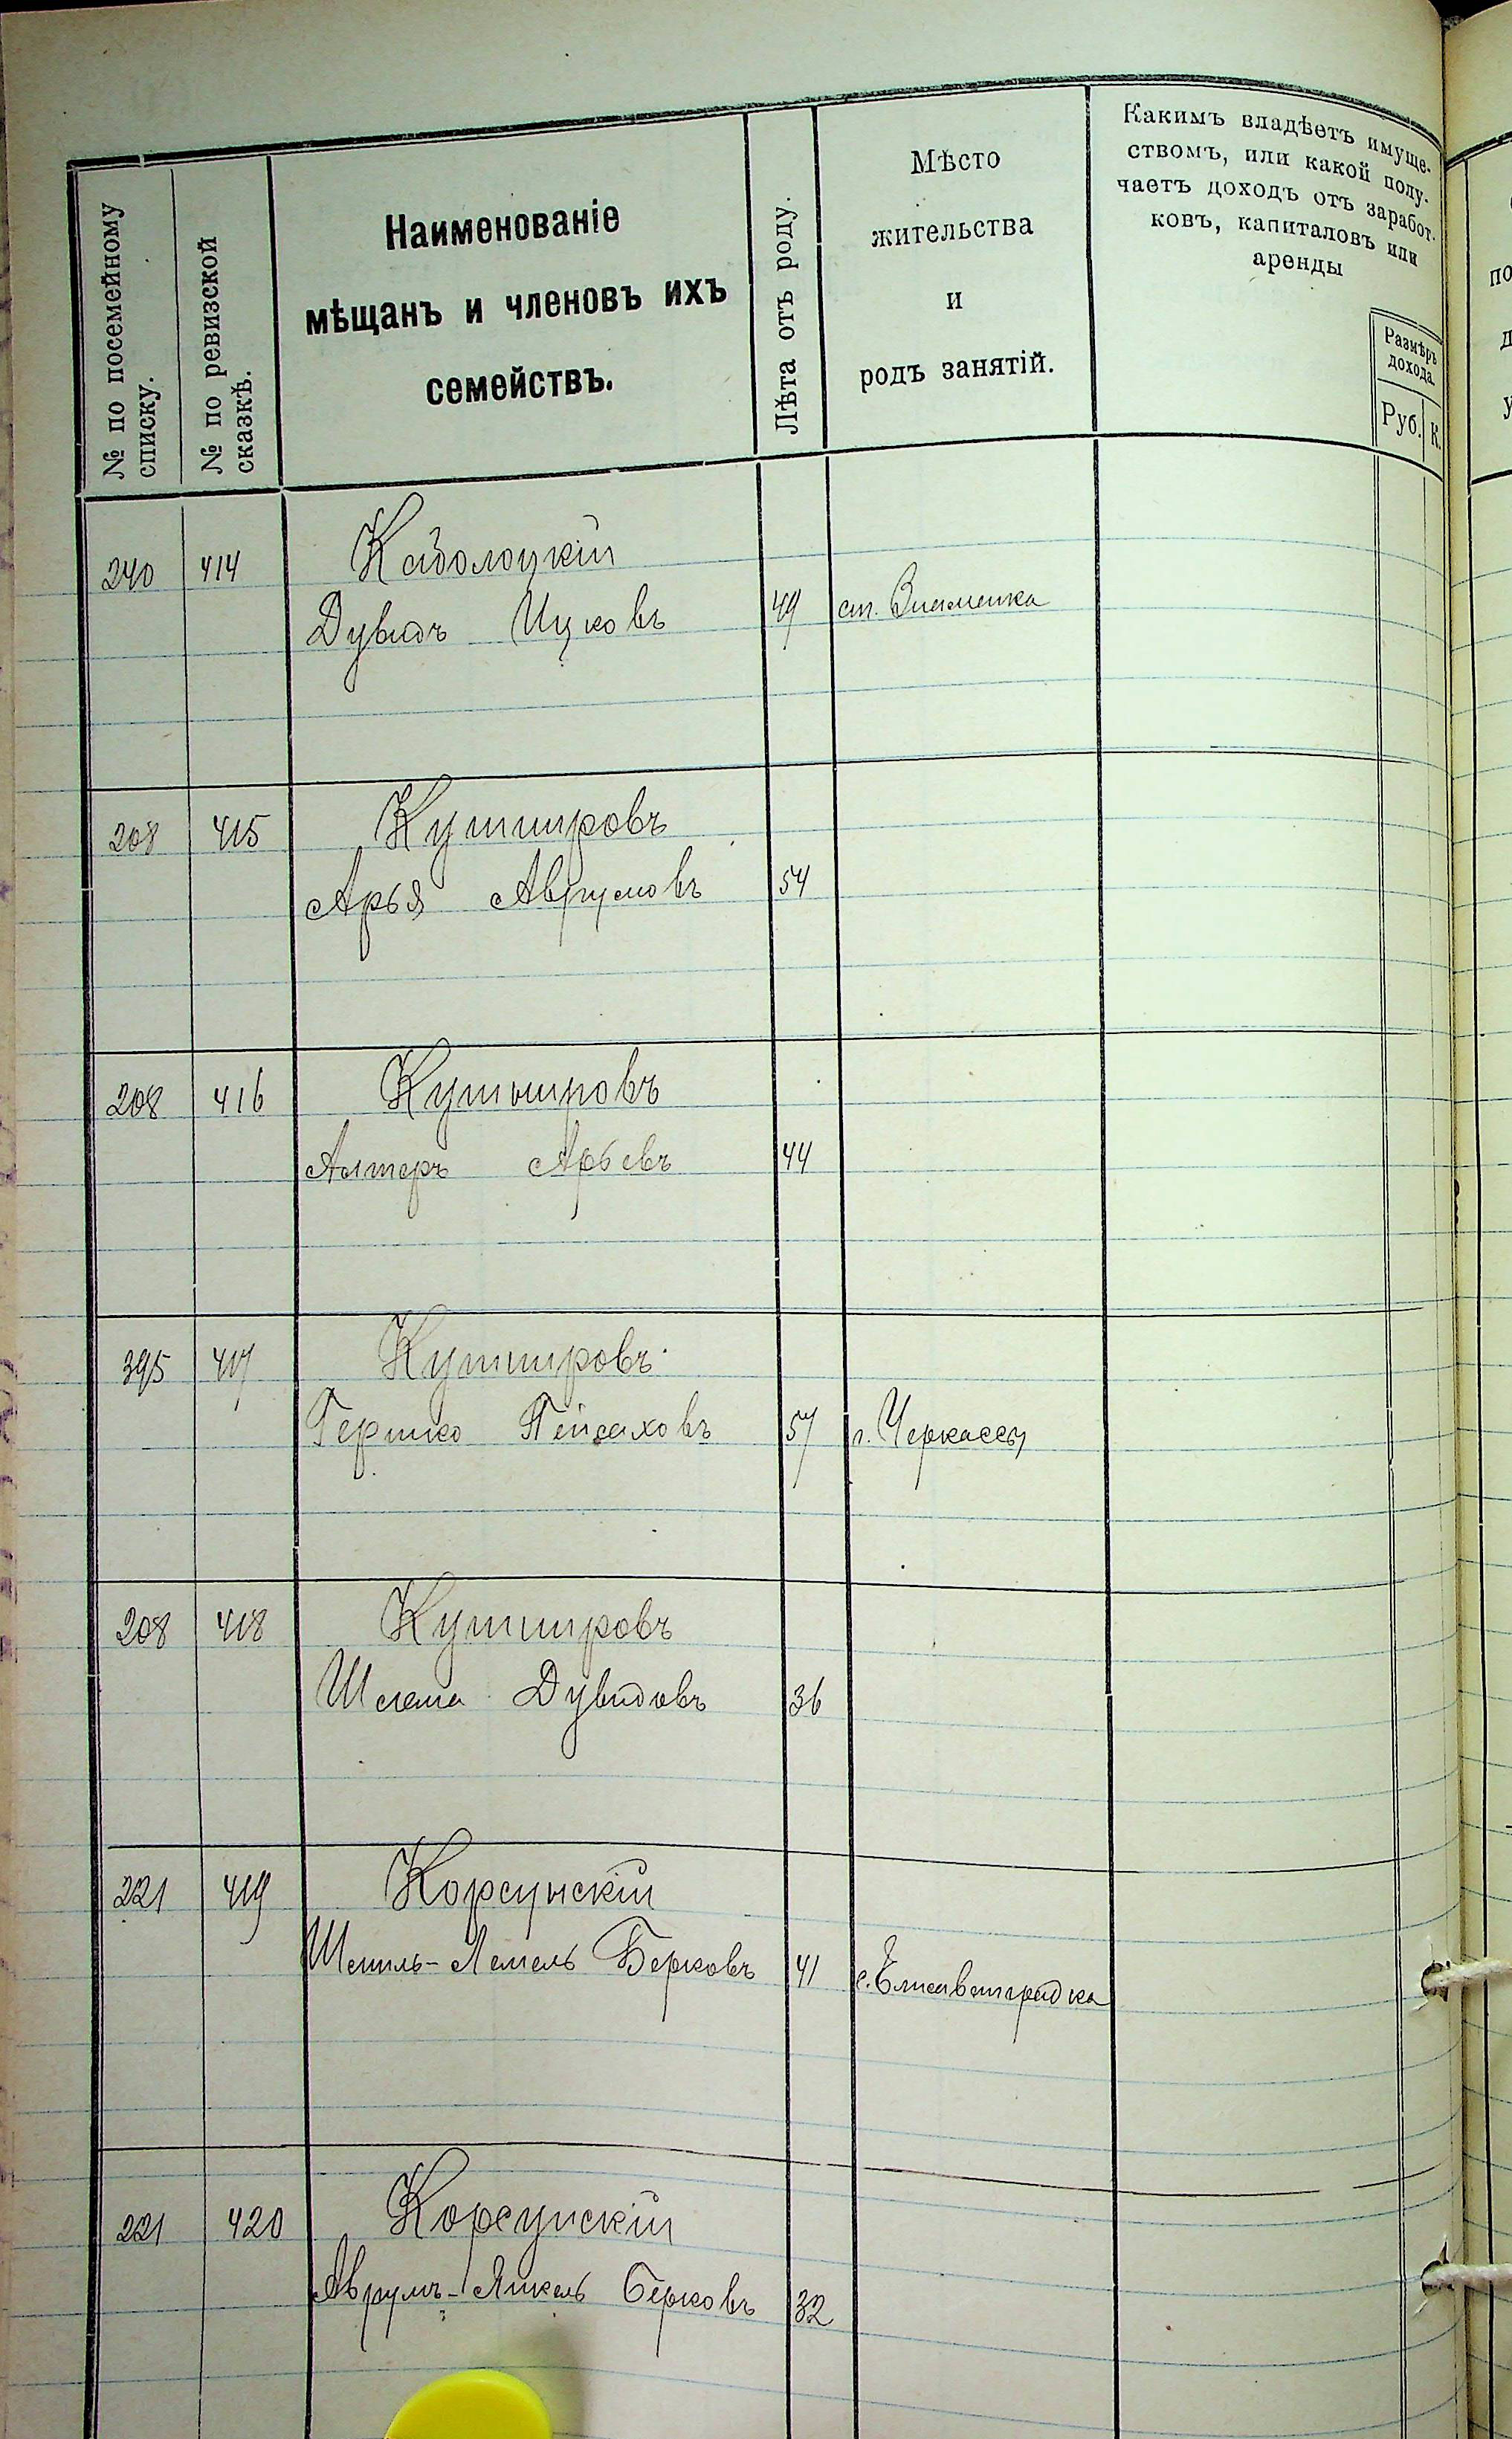 № по посемейному
списку.
№ по ревизской
сказкѣ.
Наименованіе
мѣщанъ и членовъ ихъ
семействъ.
Лѣта отъ роду.
Мѣсто
жительства
и
родъ занятій.
Какимъ владѣетъ имуще-
ствомъ, или какой полу-
чаетъ доходъ отъ заработ-
ковъ, капиталовъ или
аренды
Размѣръ
дохода.
Руб. К.
240 414
Дувидъ Ицковъ 49 ст. Знаменка
208 415 Кушнировъ
Арья Аврумовъ 54
208 416 Кушнировъ
Алтеръ Арьевъ 44
395 417 Кушнировъ
Гершко Пейсаховъ 57 г. Черкассы
208 418 Кушнировъ
Шлема Дувидовъ 36
221 419 Корсунскій
Шмиль-Лемель Берковъ 41 с. Елисаветградка
221 420 Корсунскій
Аврумъ-Янкель Берковъ 32